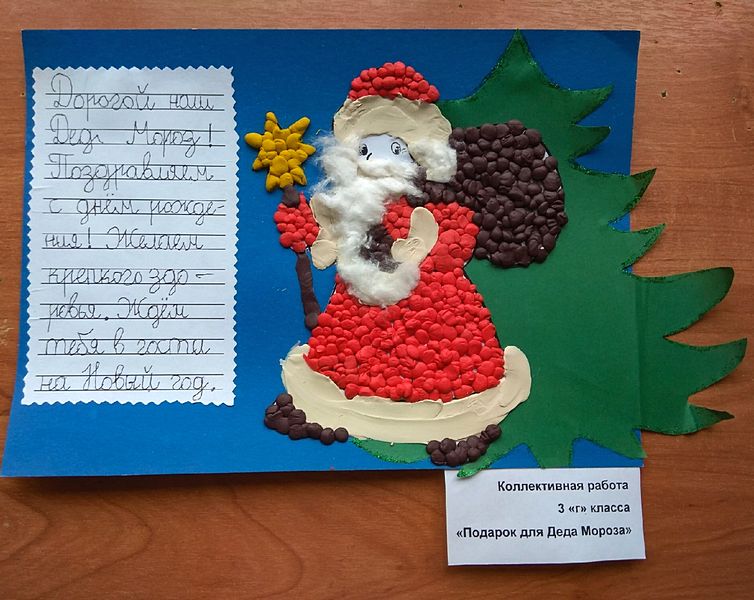 Дорогой наш
Дед Мороз!
Поздравляем
с днём рожде-
ния! Желаем
крепкого здо-
ровья. Ждём
тебя в гости
на Новый год.
Коллективная работа
3 «г» класса
«Подарок для Деда Мороза»